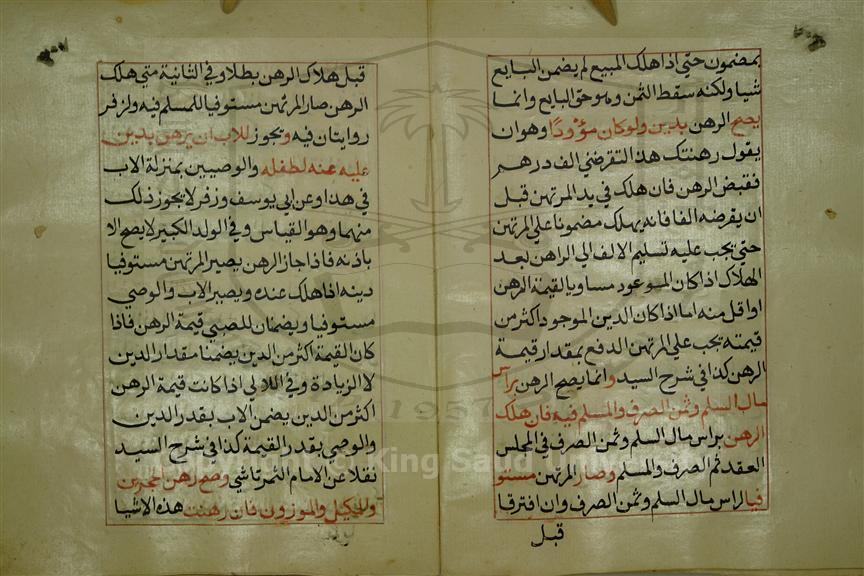 بمضمون حتي اذا هلك المبيع لم يضمن البايع
شيا ولكنه سقط الثمن وهو حق البايع وانما
يصح الرهن بدين ولو كان موؤودا وهو ان
يقول رهنتك هذا لتقرضني الف درهم
فقبض الرهن فان هلك في يد المرتهن قبل
ان يقرضه الفا فانه يهلك مضمونا علي المرتهن
حتي يجب عليه تسليم الالف الي الراهن بعد
الهلاك اذا كان الموعود مساويا لقيمة الرهن
او اقل منه اما اذا كان الدين الموجود اكثر من
قيمته يجب علي المرتهن الدفع بمقدار قيمة
الرهن كذا في شرح السيد وانما يصح الرهن براس
مال السلم وثمن الصرف والمسلم فيه فان هلك
الرهن براس مال السلم وثمن الصرف في المجلس
العقد تم الصرف والمسلم وصار المرتهن مستو
فيا لراس مال السلم وثمن الصرف وان افترقا
قبل
قبل هلاك الرهن بطلا وفي الثانية متي هلك
الرهن صار المرتهن مستوفيا للمسلم فيه ولزفر
روايتان فيه ويجوز للاب ان يرهن بدين
عليه عبده لطفله والوصيين بمنزلة الاب
في هذا وعن ابي يوسف وزفر لا يجوز ذلك
منهما وهو القياس وفي الولد الكبير لا يصح الا
باذنه فاذا جاز الرهن يصير المرتهن مستوفيا
دينه اذا هلك عنده ويصير الاب والوصي
مستوفيا ويضمنان للصبي قيمة الرهن فاذا
كان القيمة اكثر من الدين يضمنا مقدار الدين
لا الزيادة وفي اللالي اذا كانت قيمة الرهن
اكثر من الدين يضمن الاب بقدر الدين
والوصي بقدر القيمة كذا في شرح السيد
نقلا عن الامام التمرتاشي وصح رهن الحجرين
والمكيل والموزون فان رهنت هذه الاشيا
1957
King Saud